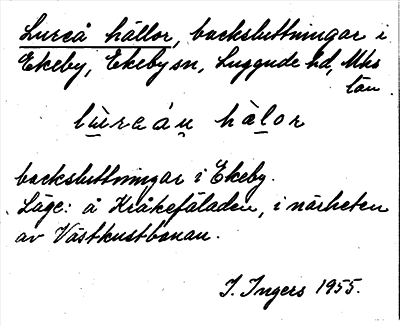 Lureå hällor, backsluttningar i
Ekeby, Ekeby sn, Luggude hd, Mhs
län.
lùreáṇ hàḷor
backsluttningar i Ekeby.
Läge: å Kråkefäladen, i närheten
av Västkustbanan.
I. Ingers 1955.